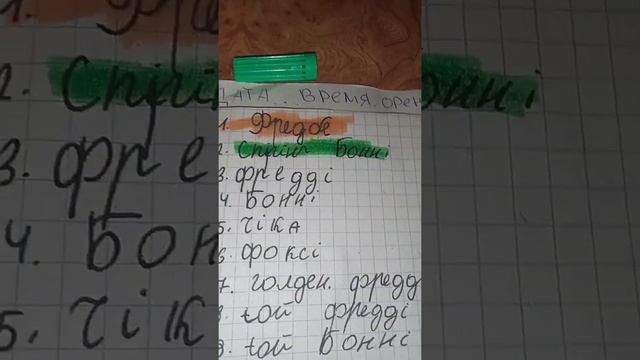 ДАТА.. ВРЕМЯ.ОРЕН
1. Фредбе
2. Спрінг Бонні
3. фредді
4. Бонні
5. Чіка
6 фоксі
7. голден. фредд
8. той фредді
9. той Бонні